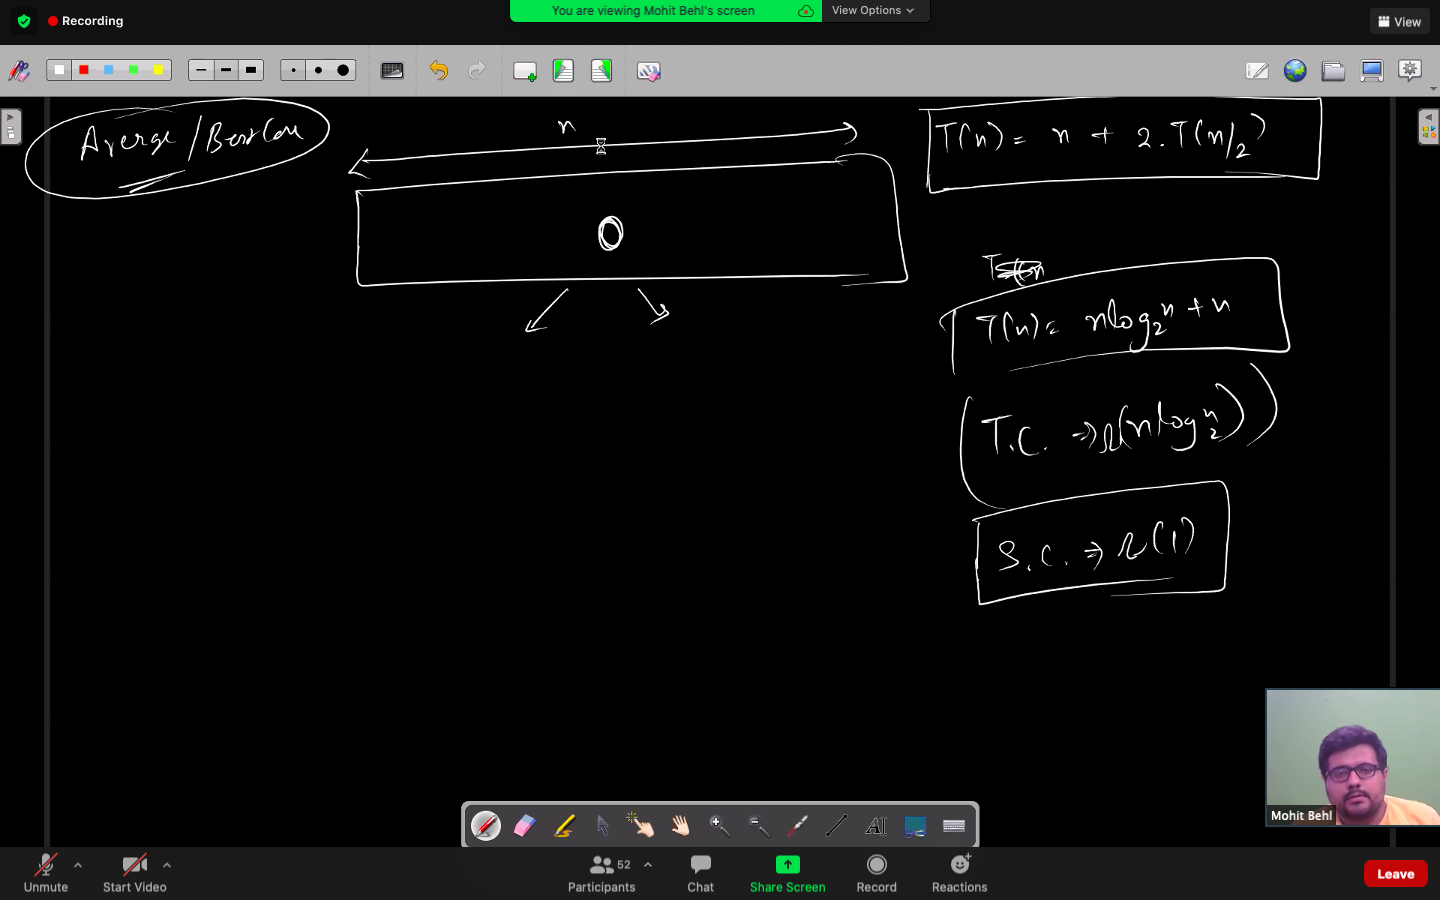 Recording
You are viewing Mohit Behl's screen
View Options
View
Average / Best Case
n
T(n) = n + 2.T(n/2)
T(n) = nlog₂n + n
T.C. ⇒ Ω(nlog₂n)
S.C. ⇒ Ω(1)
Mohit Behl
Unmute
Start Video
Participants
52
Chat
Share Screen
Record
Reactions
Leave